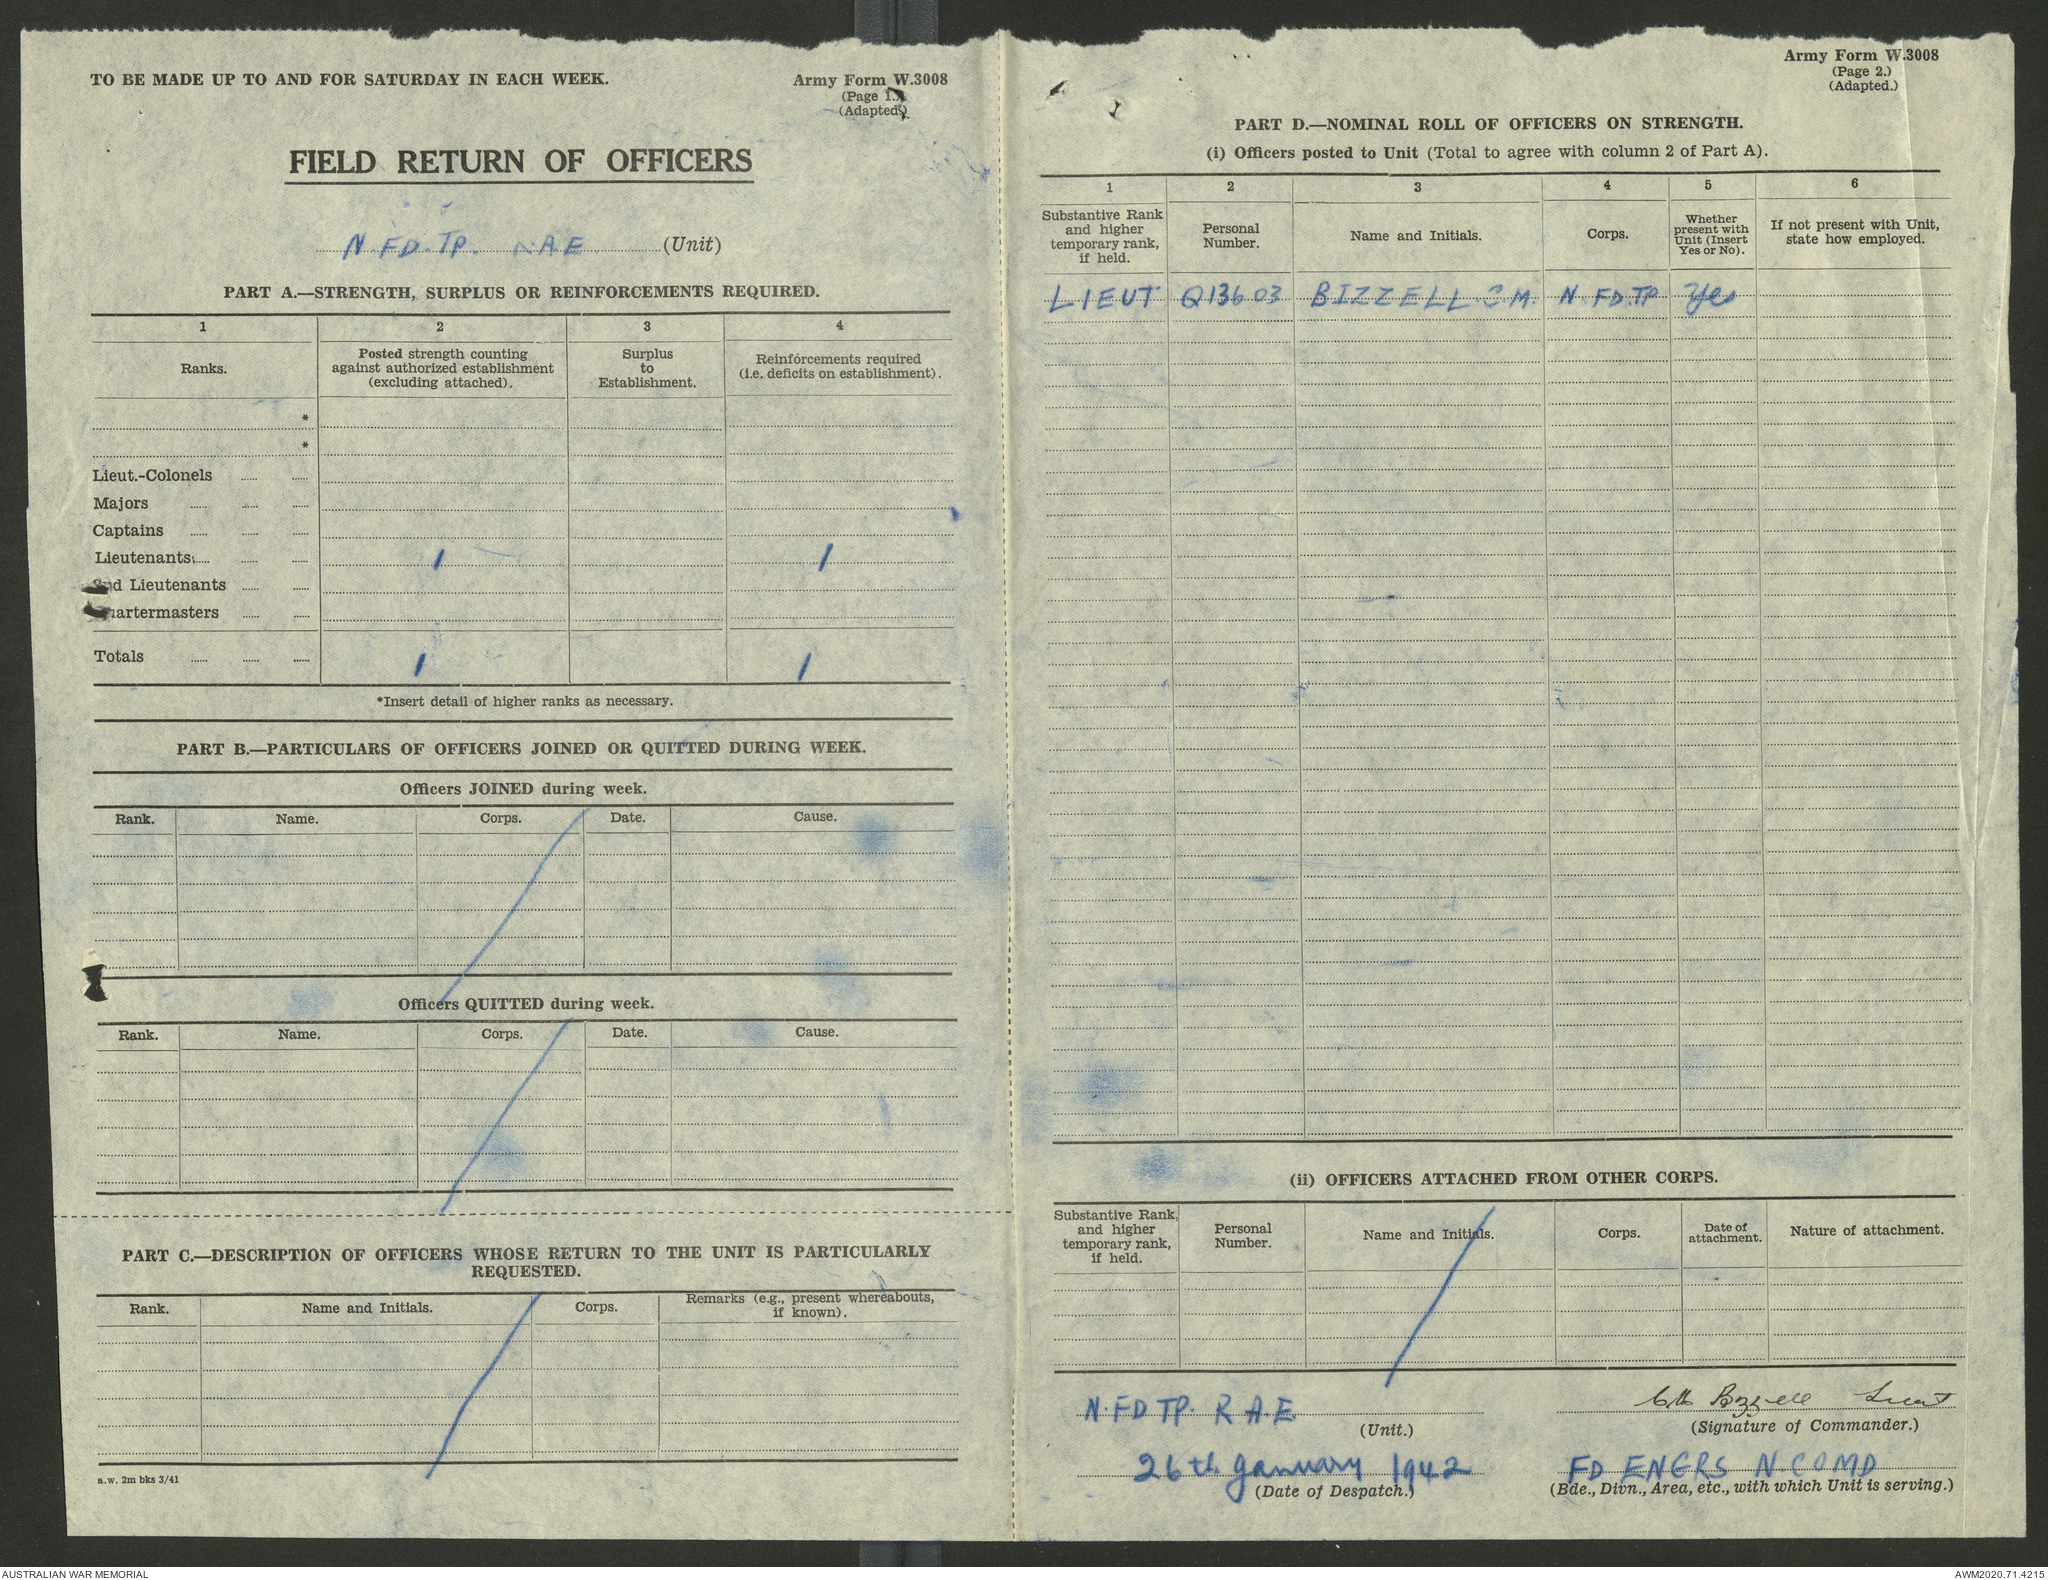 TO BE MADE UP TO AND FOR SATURDAY IN EACH WEEK.
Army Form W.3008
(Page 1.)
(Adapted.)
FIELD RETURN OF OFFICERS
N. FD. TP. R.A.E. (Unit)
PART A.—STRENGTH, SURPLUS OR REINFORCEMENTS REQUIRED.
1 2 3 4
Ranks.
Posted strength counting against authorized establishment (excluding attached).
Surplus to Establishment.
Reinforcements required (i.e. deficits on establishment).
*
*
Lieut.-Colonels
Majors
Captains
Lieutenants 1 1
2nd Lieutenants
Quartermasters
Totals 1 1
*Insert detail of higher ranks as necessary.
PART B.—PARTICULARS OF OFFICERS JOINED OR QUITTED DURING WEEK.
Officers JOINED during week.
Rank. Name. Corps. Date. Cause.
Officers QUITTED during week.
Rank. Name. Corps. Date. Cause.
PART C.—DESCRIPTION OF OFFICERS WHOSE RETURN TO THE UNIT IS PARTICULARLY
REQUESTED.
Rank. Name and Initials. Corps. Remarks (e.g., present whereabouts, if known).
a.w. 2m bks 3/41
Army Form W.3008
(Page 2.)
(Adapted.)
PART D.—NOMINAL ROLL OF OFFICERS ON STRENGTH.
(i) Officers posted to Unit (Total to agree with column 2 of Part A).
1 2 3 4 5 6
Substantive Rank and higher temporary rank, if held.
Personal Number.
Name and Initials.
Corps.
Whether present with Unit (Insert Yes or No).
If not present with Unit, state how employed.
LIEUT Q13603 BIZZELL C.M. N. FD. TP Yes
(ii) OFFICERS ATTACHED FROM OTHER CORPS.
Substantive Rank, and higher temporary rank, if held.
Personal Number.
Name and Initials.
Corps.
Date of attachment.
Nature of attachment.
N. FD TP. R.A.E
(Unit.)
CM Bizzell Lieut
(Signature of Commander.)
26th January 1942
(Date of Despatch.)
FD ENGRS N. COMD
(Bde., Divn., Area, etc., with which Unit is serving.)
AUSTRALIAN WAR MEMORIAL
AWM2020.71.4215